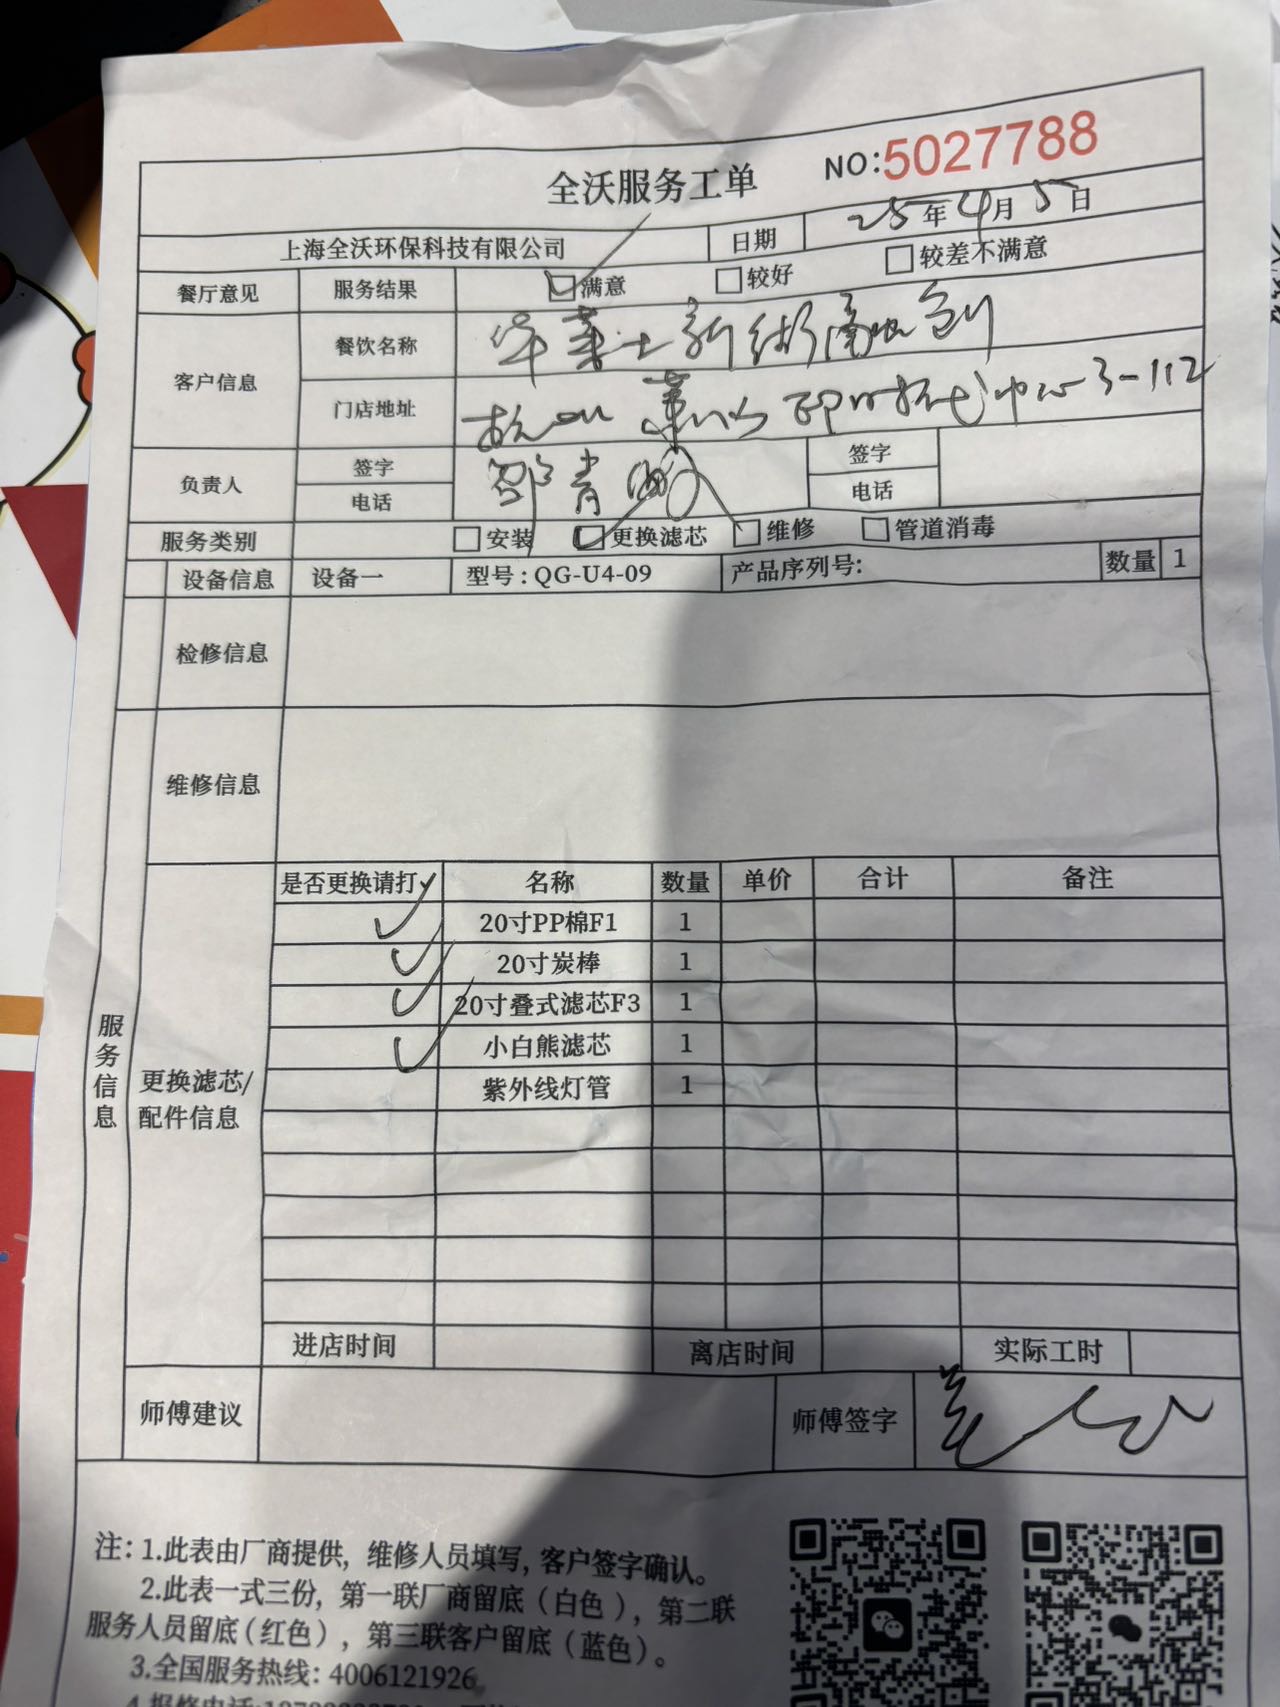 NO:5027788
全沃服务工单
上海全沃环保科技有限公司 日期 25年4月5日
餐厅意见 服务结果 满意 较好 较差不满意
客户信息 餐饮名称 华莱士新街
门店地址 杭州 萧山 中心3-112
负责人 签字 邵青 签字
电话 电话
服务类别 安装 更换滤芯 维修 管道消毒
设备信息 设备一 型号:QG-U4-09 产品序列号: 数量 1
检修信息
维修信息
服务信息
更换滤芯/配件信息
是否更换请打✓ 名称 数量 单价 合计 备注
✓ 20寸PP棉F1 1
✓ 20寸炭棒 1
✓ 20寸叠式滤芯F3 1
✓ 小白熊滤芯 1
紫外线灯管 1
进店时间 离店时间 实际工时
师傅建议 师傅签字
注: 1.此表由厂商提供, 维修人员填写, 客户签字确认。
2.此表一式三份, 第一联厂商留底(白色), 第二联
服务人员留底(红色), 第三联客户留底(蓝色)。
3.全国服务热线: 4006121926
4.报修电话: